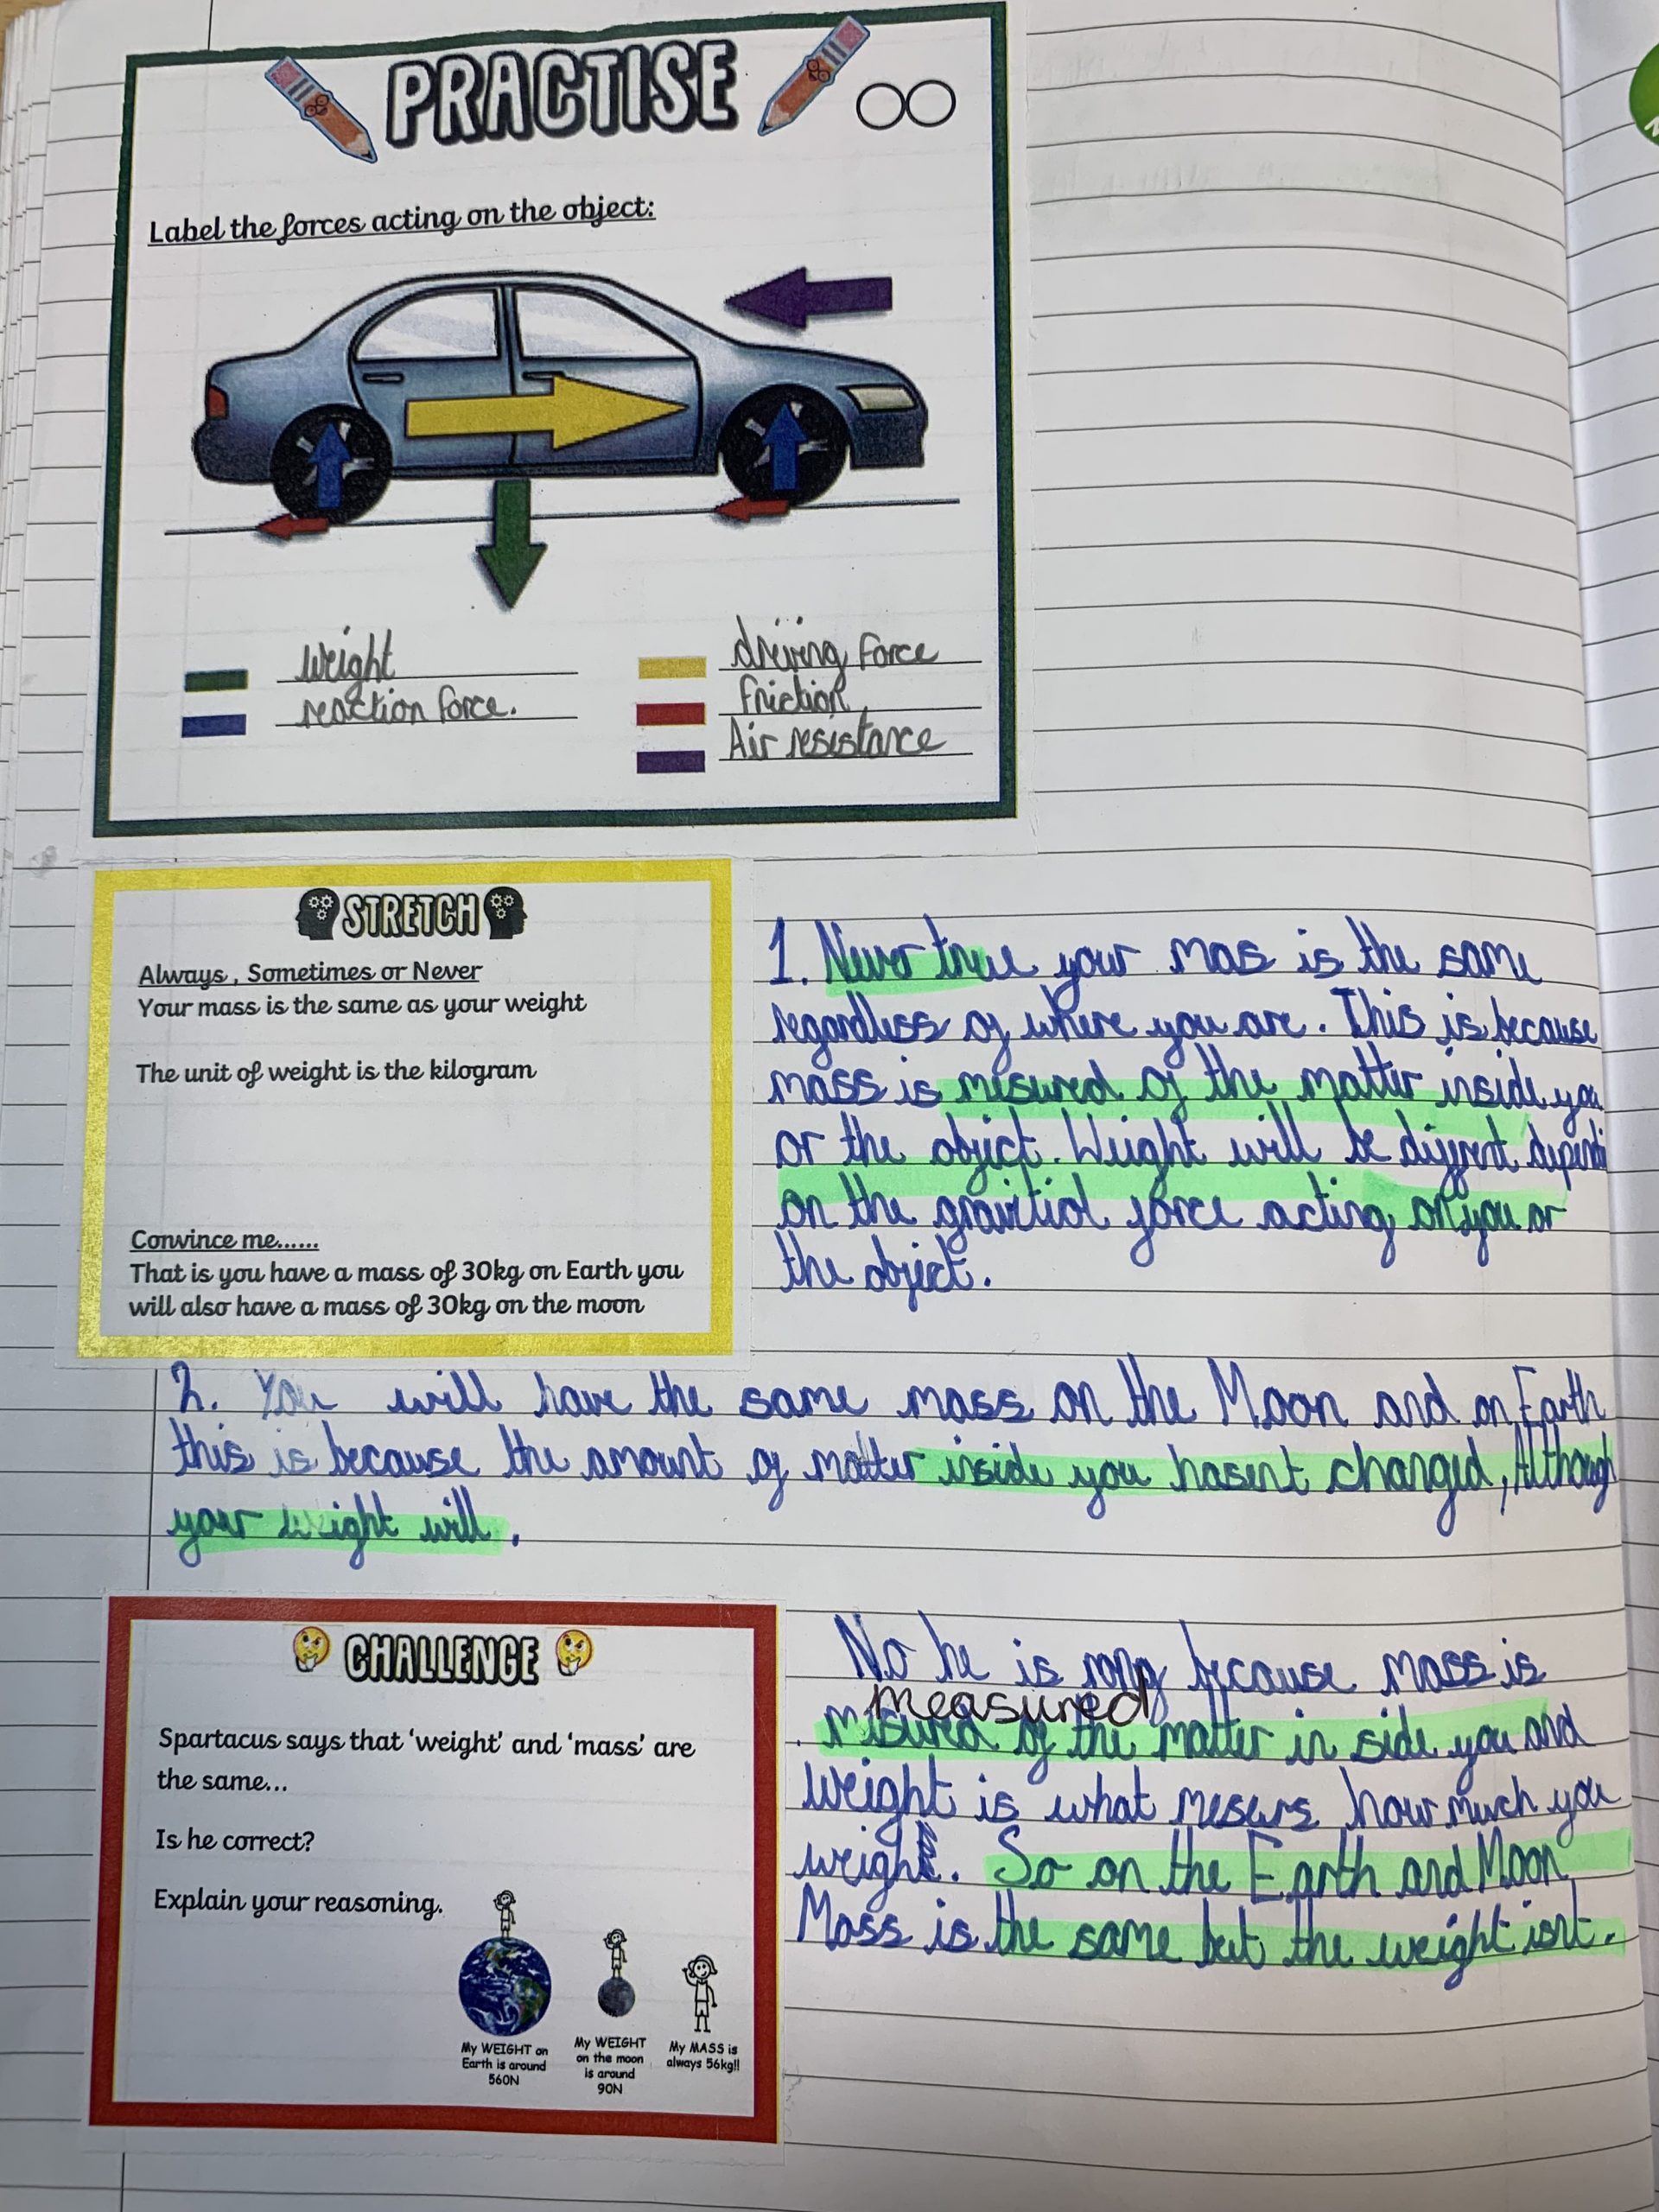 PRACTISE
Label the forces acting on the object:
weight
reaction force.
driving force
friction
Air resistance
STRETCH
Always, Sometimes or Never
Your mass is the same as your weight
The unit of weight is the kilogram
Convince me......
That is you have a mass of 30kg on Earth you
will also have a mass of 30kg on the moon
1. Never true your mas is the same
regardless of where you are. This is because
mass is misured of the matter inside you
or the object. Weight will be diffrent
on the force acting on you or
the object.
2. You will have the same mass on the Moon and on Earth
this is because the amount of matter inside you hasent changed, Although
your weight will.
CHALLENGE
Spartacus says that 'weight' and 'mass' are
the same...
Is he correct?
Explain your reasoning.
My WEIGHT on
Earth is around
560N
My WEIGHT
on the moon
is around
90N
My MASS is
always 56kg!!
No he is rong because mass is
measured
misured of the matter in side you and
weight is what mesurs how much you
weigh. So on the Earth and Moon
Mass is the same but the weight isnt.